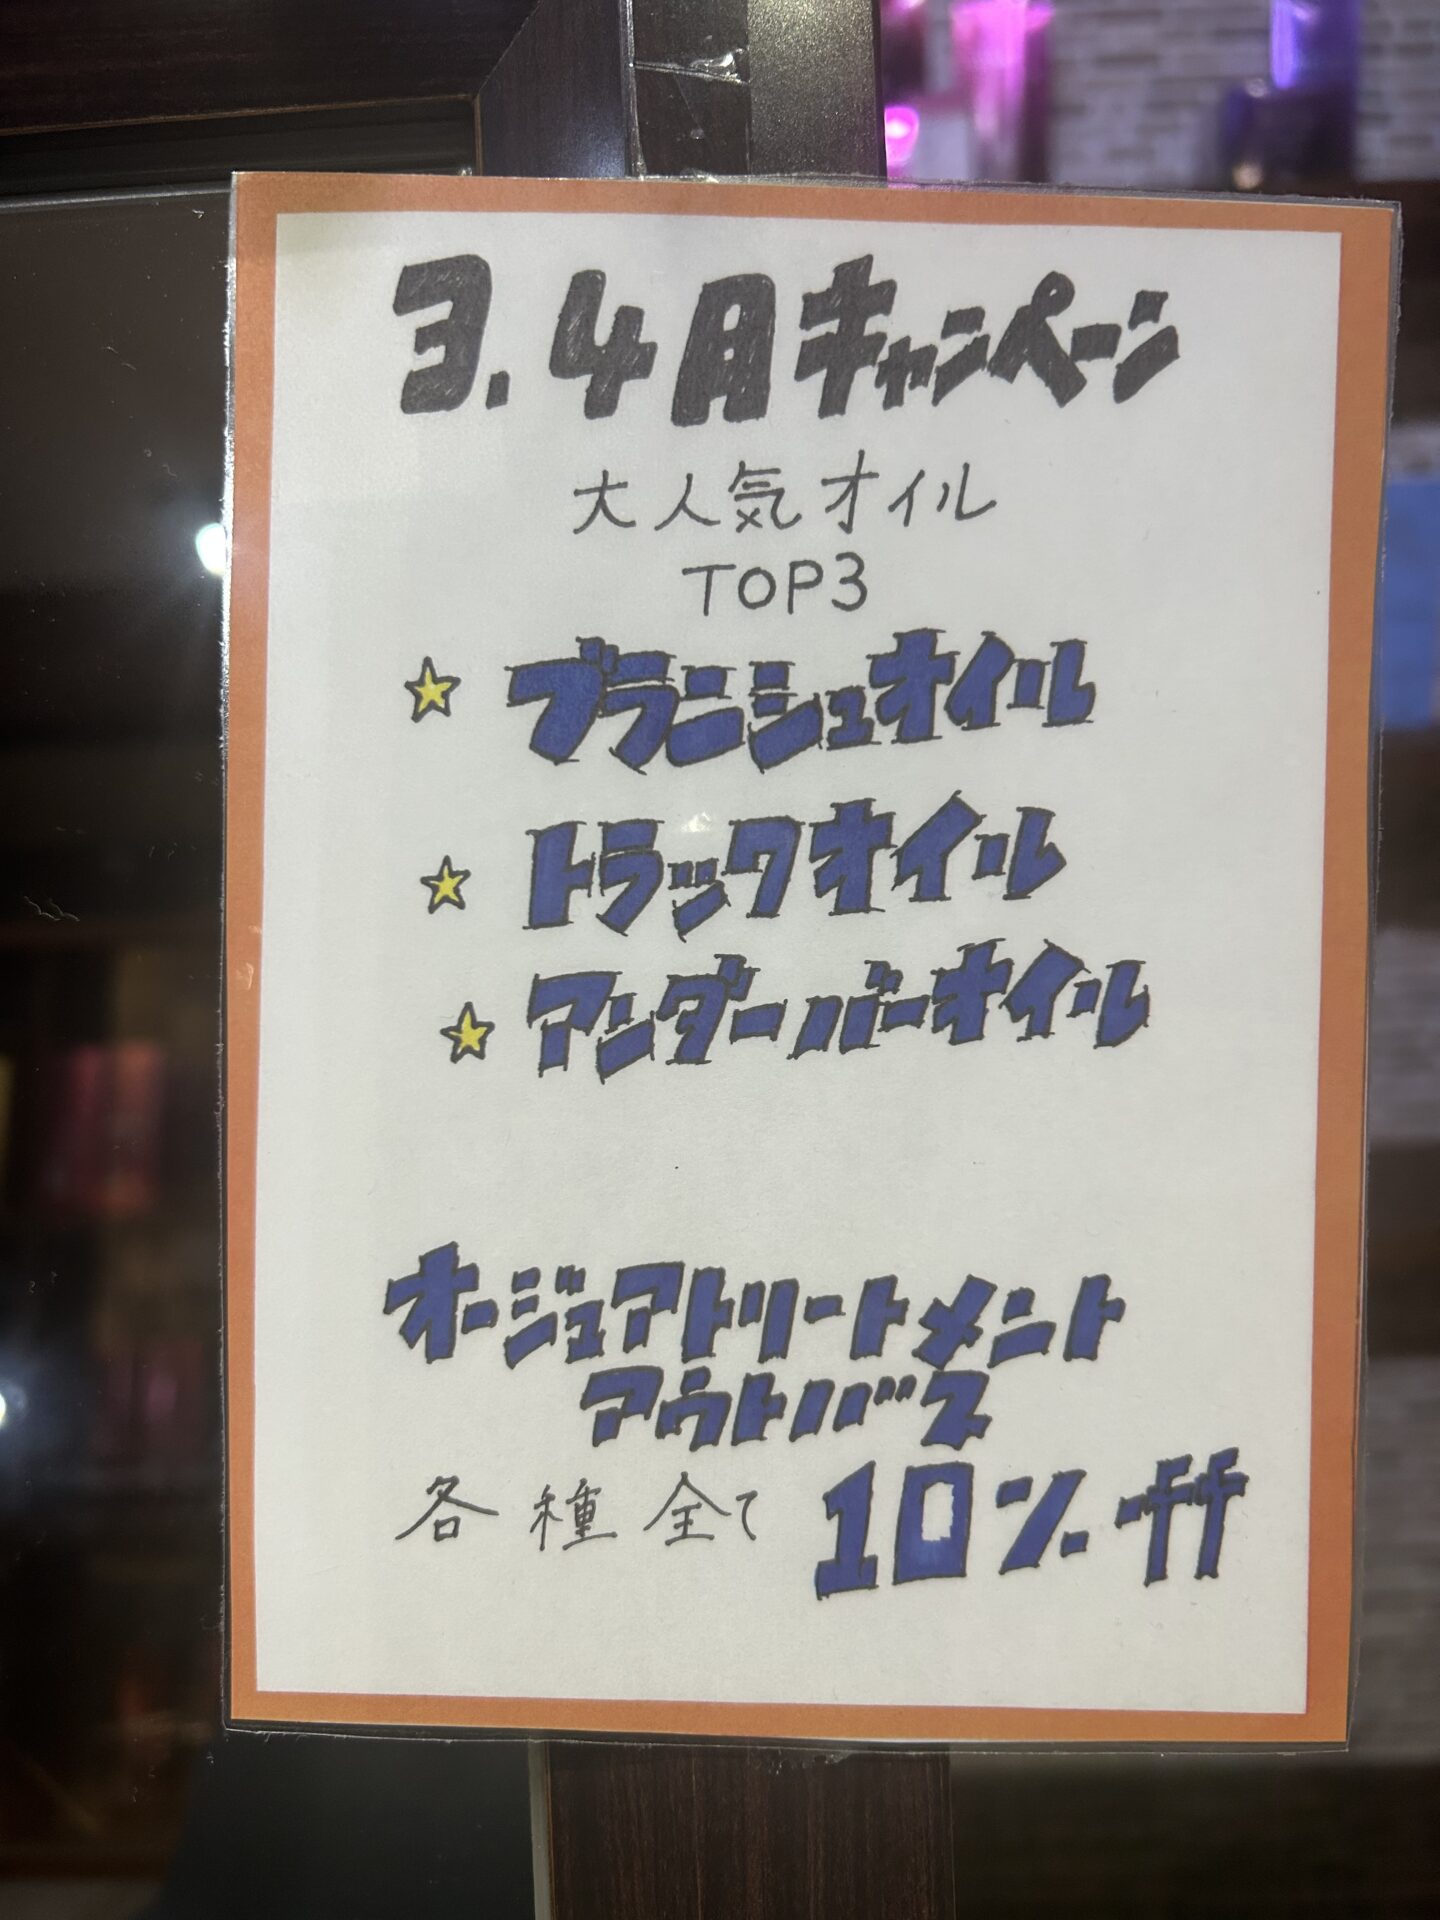 3.4月キャンペーン
大人気オイル
TOP3
★ ブランニシュオイル
★ トラックオイル
★ アンダーバーオイル
オージュアトリートメント
アウトバス
各種全て 10%off